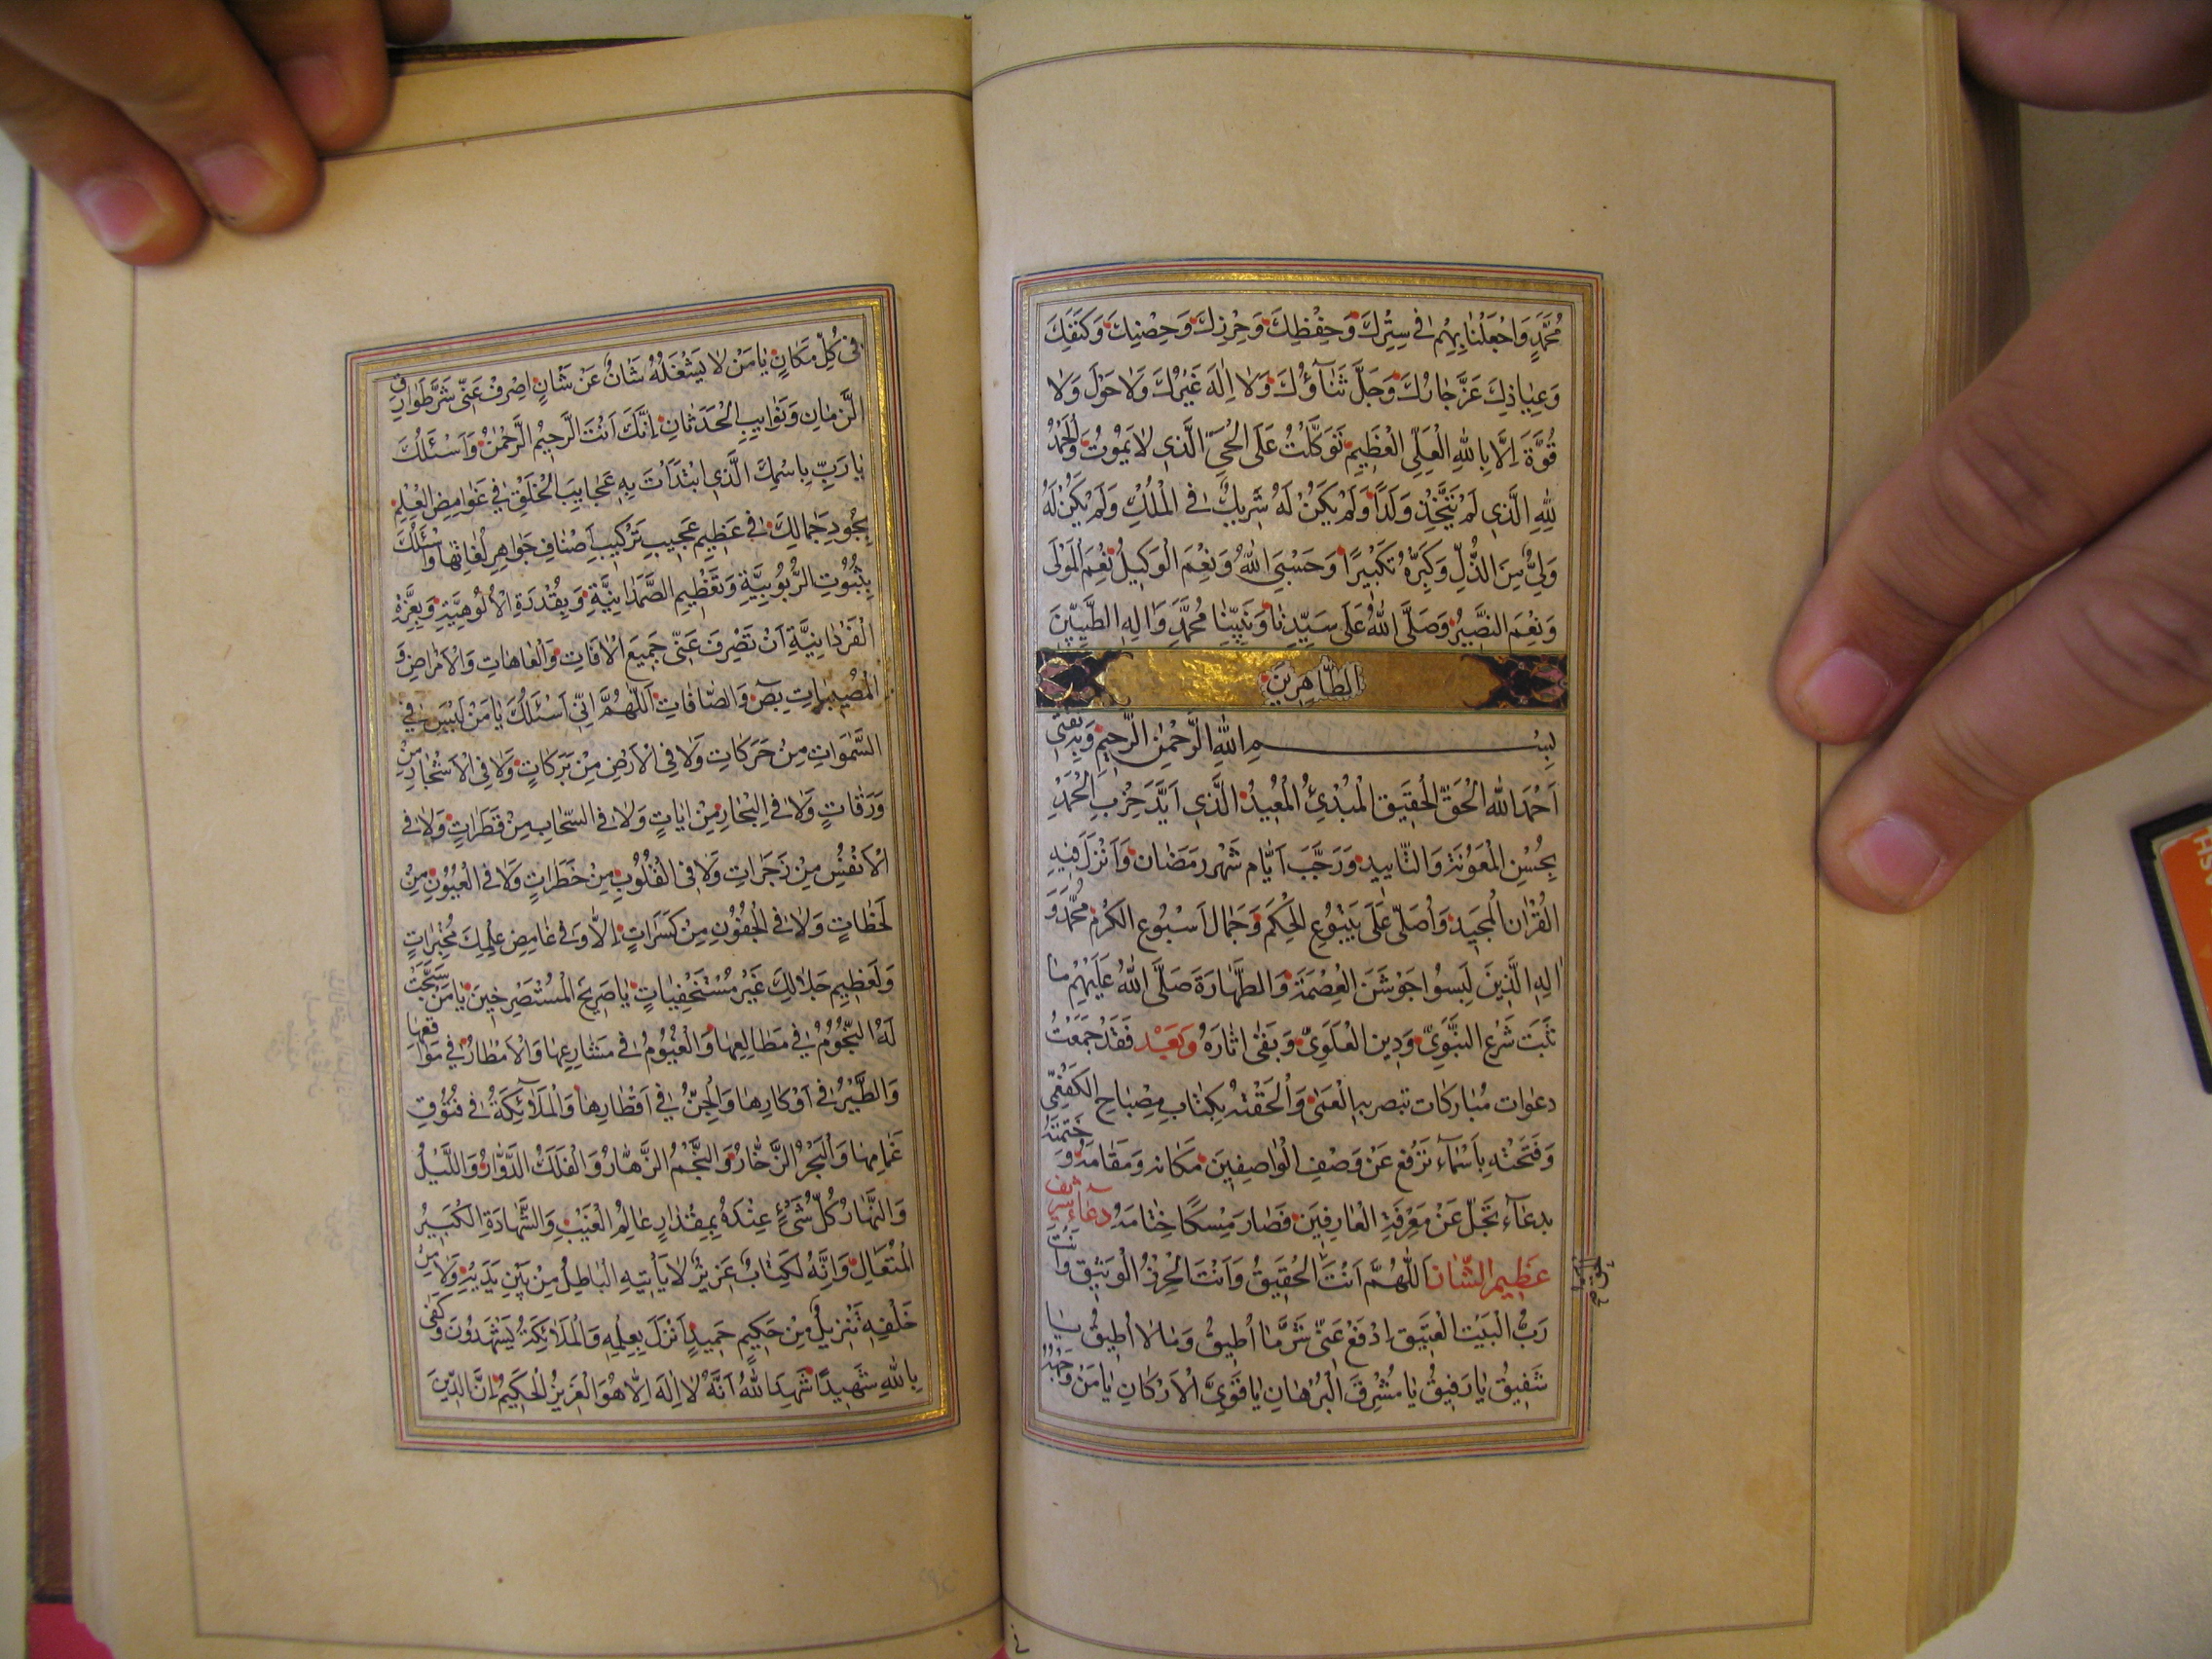 مُحَمَّدٍ وَاجْعَلْنَا بِهِمْ فِي سِتْرِكَ وَحِفْظِكَ وَحِرْزِكَ وَحِصْنِكَ وَكَنَفِكَ
وَعِيَاذِكَ عَزَّ جَارُكَ وَجَلَّ ثَنَآؤُكَ وَلَا اِلَهَ غَيْرُكَ وَلَا حَوْلَ وَلَا
قُوَّةَ اِلَّا بِاللهِ الْعَلِيِّ الْعَظِيمِ تَوَكَّلْتُ عَلَى الْحَيِّ الَّذِي لَا يَمُوتُ وَالْحَمْدُ
لِلهِ الَّذِي لَمْ يَتَّخِذْ وَلَدًا وَلَمْ يَكُنْ لَهُ شَرِيكٌ فِي الْمُلْكِ وَلَمْ يَكُنْ لَهُ
وَلِيٌّ مِنَ الذُّلِّ وَكَبِّرْهُ تَكْبِيرًا وَحَسْبِيَ اللهُ وَنِعْمَ الْوَكِيلُ نِعْمَ الْمَوْلَى
وَنِعْمَ النَّصِيرُ وَصَلَّى اللهُ عَلَى سَيِّدِنَا وَنَبِيِّنَا مُحَمَّدٍ وَالِهِ الطَّيِّبِينَ
الطَّاهِرِينَ
بِسْمِ اللهِ الرَّحْمٰنِ الرَّحِيمِ وَبِهِ ثِقَتِي
اَحْمَدُ اللهَ الْحَقَّ الْحَقِيقَ الْمُبْدِئُ الْمُعِيدُ الَّذِي اَيَّدَ حِزْبَ الْحَمْدِ
بِحُسْنِ الْمَعُونَةِ وَالتَّأْيِيدِ وَرَجَّبَ اَيَّام شَهْر رَمَضَان وَاَنْزَلَ فِيهِ
الْقُرْاٰن الْمَجِيد وَاُصَلِّي عَلَى يَنْبُوعِ الْحِكَمِ وَجَمَال اُسْبُوعِ الْكَرَمِ مُحَمَّد وَ
اٰلِهِ الَّذِينَ لَبِسُوا جَوْشَنَ الْعِصْمَةِ وَالطَّهَارَةِ صَلَّى اللهُ عَلَيْهِمْ مَا
ثَبَتَ شَرْع النَّبَوِيّ وَدِين الْعَلَوِيّ وَبَقِيَ اٰثَارهُ وَبَعْد فَقَدْ جَمَعْتُ
دعوات مُبَارَكَات تبصر بِهَا الْعَمَى وَاَلْحَقْتهُ بِكِتَابِ مِصْبَاحِ الْكَفْعَمِيّ
وَفَتَحْته بِاَسْمَآء تَرْفع عَنْ وَصْفِ الْوَاصِفِينَ مَكَانه وَمَقَامه وَخَتَمْتهُ
بدعَآء تَجِلّ عَنْ مَعْرِفَةِ الْعَارِفِينَ فَصَارَ مِسْكًا خِتَامهُ دعَآء شريف
عَظِيم الشَّان اَللّٰهُمَّ اَنْتَ الْحَقِيقُ وَاَنْتَ الْحِرْزُ الْوَثِيق وَاَنْتَ
رَبُّ الْبَيْتِ الْعَتِيقِ اِدْفَعْ عَنِّي شَرَّ مَا اُطِيقُ وَمَا لَا اُطِيقُ يَا
شَفِيقُ يَا رَفِيقُ يَا مُشْرِقَ الْبُرْهَانِ يَا قَوِيَّ الْاَرْكَانِ يَا مَنْ وَجْهُهُ
فِي كُلِّ مَكَانٍ يَا مَنْ لَا يَشْغَلُهُ شَانٌ عَنْ شَانٍ اِصْرِفْ عَنِّي شَرَّ طَوَارِقِ
الزَّمَانِ وَنَوَايِبِ الْحَدَثَانِ اِنَّكَ اَنْتَ الرَّحِيمُ الرَّحْمٰنُ وَاَسْئَلُكَ
يَا رَبِّ بِاسْمِكَ الَّذِي ابْتَدَاْتَ بِهِ عَجَايِبَ الْخَلْقِ فِي غَوَامِضِ الْعِلْمِ
بِجُودِ جَمَالِكَ فِي عَظِيمِ عَجِيبِ تَرْكِيبِ اَصْنَافِ جَوَاهِرِ لُغَاتِهَا وَاَسْئَلُكَ
بِثُبُوتِ الرُّبُوبِيَّةِ وَتَعْظِيمِ الصَّمَدَانِيَّةِ وَبِقُدْرَةِ الْاُلُوهِيَّةِ وَبِعِزَّةِ
الْفَرْدَانِيَّةِ اَنْ تَصْرِفَ عَنِّي جَمِيعَ الْاٰفَاتِ وَالْعَاهَاتِ وَالْاَمْرَاضِ وَ
الْمُصِيبَاتِ بِصٓ وَالصَّافَّاتِ اَللّٰهُمَّ اِنِّي اَسْئَلُكَ يَا مَنْ لَيْسَ فِي
السَّمٰوَاتِ مِنْ حَرَكَاتٍ وَلَا فِي الْاَرْضِ مِنْ بَرَكَاتٍ وَلَا فِي الْاَشْجَارِ مِنْ
وَرَقَاتٍ وَلَا فِي الْبِحَارِ مِنْ اٰيَاتٍ وَلَا فِي السَّحَابِ مِنْ قَطَرَاتٍ وَلَا فِي
الْاَنْفُسِ مِنْ زَجَرَاتٍ وَلَا فِي الْقُلُوبِ مِنْ خَطَرَاتٍ وَلَا فِي الْعُيُونِ مِنْ
لَحَظَاتٍ وَلَا فِي الْجُفُونِ مِنْ كَسَرَاتٍ اِلَّا وَفِي غَامِضِ عِلْمِكَ مُخْبَرَاتٍ
وَلِعَظِيمِ جَلَالِكَ غَيْرُ مُسْتَخْفِيَاتٍ يَا صَرِيخَ الْمُسْتَصْرِخِينَ يَا مَنْ سَبَّحَتْ
لَهُ النُّجُومُ فِي مَطَالِعِهَا وَالْغُيُومُ فِي مَشَارِعِهَا وَالْاَمْطَارُ فِي مَوَاقِعِهَا
وَالطَّيْرُ فِي اَوْكَارِهَا وَالْجِنُّ فِي اَقْطَارِهَا وَالْمَلَآئِكَةُ فِي فُتُوقِ
غَمَامِهَا وَالْبَحْرُ الزَّخَّارُ وَالنَّجْمُ الزَّهَّارُ وَالْفَلَكُ الدَّوَّارُ وَاللَّيْلُ
وَالنَّهَارُ كُلُّ شَيْءٍ عِنْدَهُ بِمِقْدَارٍ عَالِمُ الْغَيْبِ وَالشَّهَادَةِ الْكَبِيرُ
الْمُتَعَالِ وَاِنَّهُ لَكِتَابٌ عَزِيزٌ لَا يَأْتِيهِ الْبَاطِلُ مِنْ بَيْنِ يَدَيْهِ وَلَا مِنْ
خَلْفِهِ تَنْزِيلٌ مِنْ حَكِيمٍ حَمِيدٍ اَنْزَلَ بِعِلْمِهِ وَالْمَلَائِكَةُ يَشْهَدُونَ وَكَفَى
بِاللهِ شَهِيدًا شَهِدَ اللهُ اَنَّهُ لَا اِلَهَ اِلَّا هُوَ الْعَزِيزُ الْحَكِيمُ اِنَّ الدِّينَ